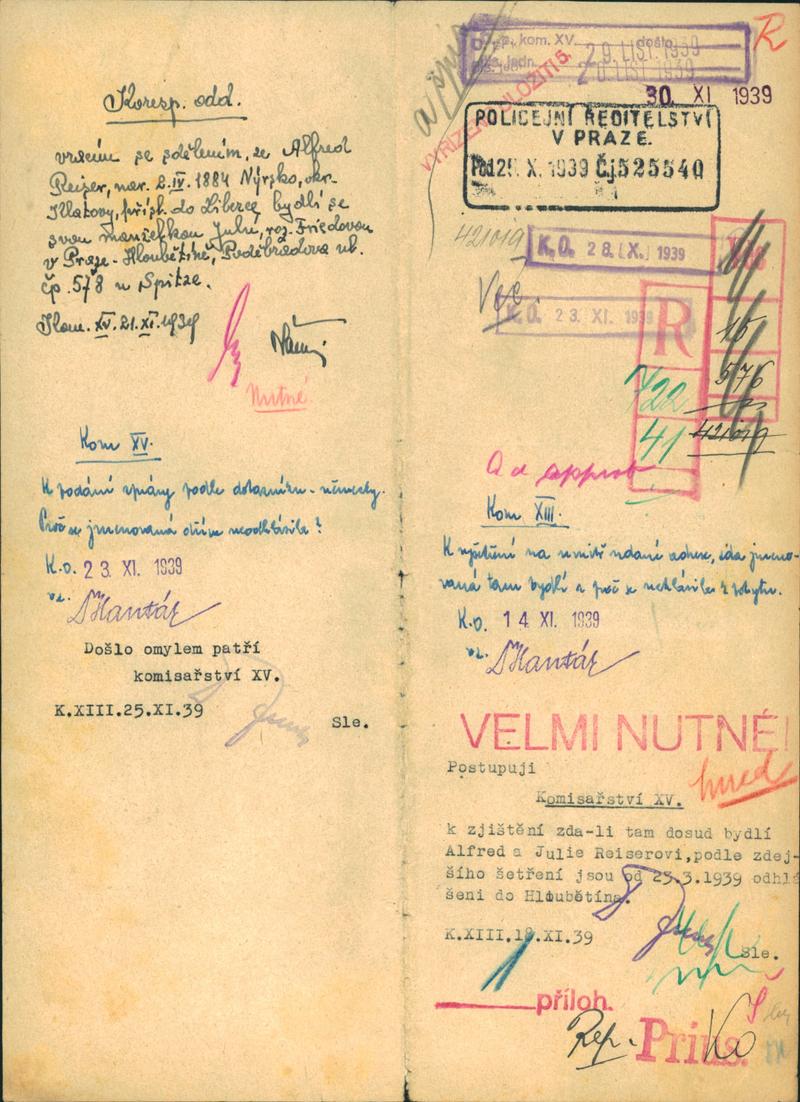 Koresp. odd.
vracím se sdělením, že Alfred
Reiser, nar. 2.IV.1884 Nýrsko, okr.
Klatovy, přísl. do Liberce, bydlí se
svou manželkou Julií, roz. Friedovou
v Praze - Hloubětíně, Poděbradova ul.
čp. 578 u Spitze.
Kom. XV. 21.XI.1939
Nutné
Kom XV.
K podání zprávy podle dotazníku - německy.
Proč se jmenovaná dříve neodhlásila?
K.o. 23 XI. 1939
vz.
Došlo omylem patří
komisařství XV.
K.XIII.25.XI.39
Sle.
kom. XV. došlo 29. LIST. 1939
20. LIST 1939
R
VYŘIZENO ULOŽITI S.
30 XI 1939
POLICEJNÍ ŘEDITELSTVÍ
V PRAZE.
Pod 25. X. 1939 Čj 525540
421019
K.O. 28 [X.] 1939
K.O. 23 XI. 1939
R
15
576
722
41
421019
Ad approb
Kom XIII.
K zjištění na uvnitř udané adrese, zda jmeno-
vaná tam bydlí a proč se nehlásila k pobytu.
K.o. 14 XI. 1939
vz.
VELMI NUTNÉ!
hned
Postupuji
Komisařství XV.
k zjištění zda-li tam dosud bydlí
Alfred a Julie Reiserovi,podle zdej-
šího šetření jsou od 23.3.1939 odhlá
šeni do Hloubětína.
K.XIII.18.XI.39
Sle.
1
příloh.
Rep. Prius. Ko